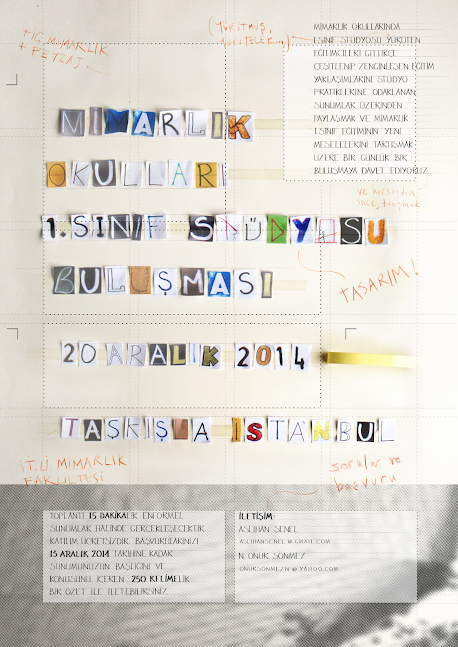 +İÇ MİMARLIK
+ PEYZAJ...
(YÜRÜTMÜŞ,
YÜRÜTECEK...)
MİMARLIK OKULLARINDA
1.SINIF STÜDYOSU YÜRÜTEN
EĞİTİMCİLERİ GİTTİKÇE
ÇEŞİTLENİP ZENGİNLEŞEN EĞİTİM
YAKLAŞIMLARINI STÜDYO
PRATİKLERİNE ODAKLANAN
SUNUMLAR ÜZERİNDEN
PAYLAŞMAK VE MİMARLIK
1.SINIF EĞİTİMİNİN YENİ
MESELELERİNİ TARTIŞMAK
ÜZERE BİR GÜNLÜK BİR
BULUŞMAYA DAVET EDİYORUZ.
ve herşeyden
önce, tanışmak
MİMARLIK
OKULLARI
1.SINIF STÜDYOSU
BULUŞMASI
TASARIM!
20 ARALIK 2014
TAŞKIŞLA İSTANBUL
İ.T.Ü MİMARLIK
FAKÜLTESİ
sorular ve
başvuru
TOPLANTI 15 DAKİKALIK ENFORMEL
SUNUMLAR HALİNDE GERÇEKLEŞECEKTİR.
KATILIM ÜCRETSİZDİR. BAŞVURULARINIZI
15 ARALIK 2014 TARİHİNE KADAR
SUNUMUNUZUN BAŞLIĞINI VE
KONUSUNU İÇEREN 250 KELİMELİK
BİR ÖZET İLE İLETEBİLİRSİNİZ.
İLETİŞİM:
ASLIHAN ŞENEL
ASLIHANSENEL@GMAIL.COM
N. ONUR SÖNMEZ
ONURSONMEZN@YAHOO.COM